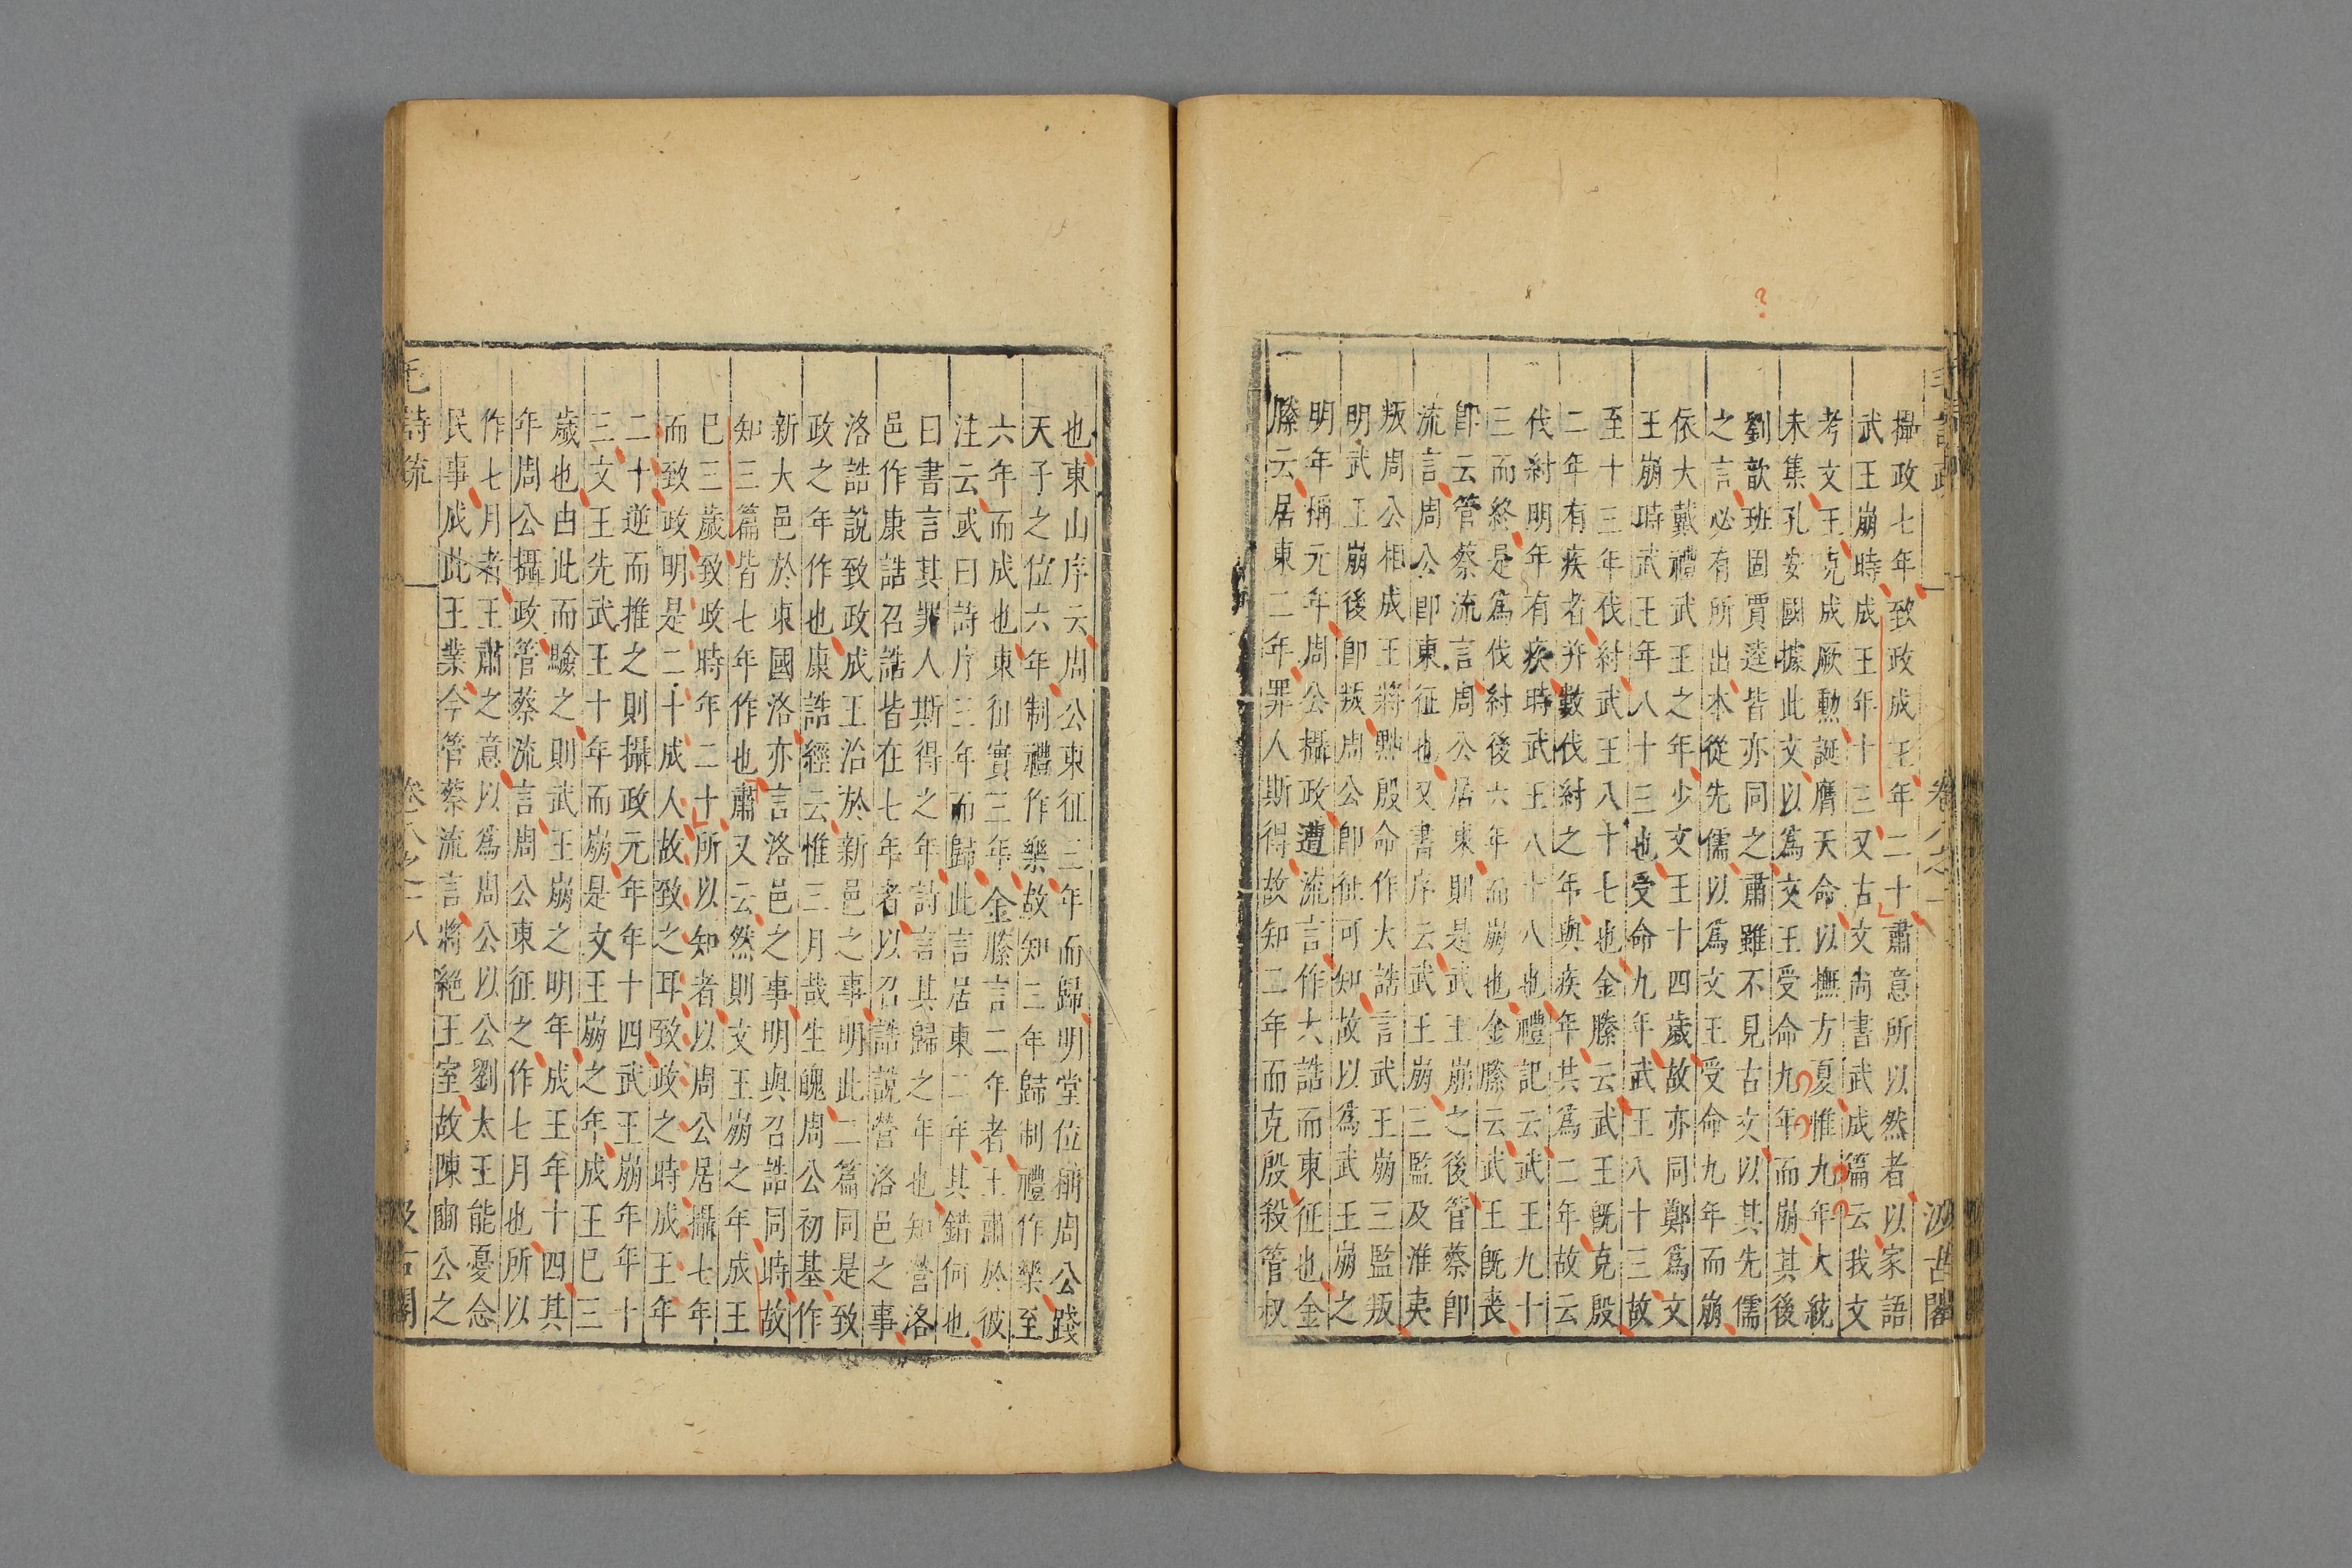 攝政七年致政成王年二十肅意所以然者以家語
武王崩時成王年十三又古文尚書武成篇云我文
考文王克成厥勲誕膺天命以撫方夏惟九年大統
未集孔安國據此文以爲文王受命九年而崩其後
劉歆班固賈逵皆亦同之肅雖不見古文以其先儒
之言必有所出本從先儒以爲文王受命九年而崩
依大戴禮武王之年少文王十四歲故亦同鄭爲文
王崩時武王年八十三也受命九年武王八十三故
至十三年伐紂武王八十七也金縢云武王旣克殷
二年有疾者并數伐紂之年與疾年其爲二年故云
伐紂明年有疾時武王八十八也禮記云武王九十
三而終是爲伐紂後六年而崩也金縢云武王旣喪
卽云管蔡流言周公居東則是武王崩之後管蔡卽
流言周公卽東征也又書序云武王崩三監及淮夷
叛周公相成王將黜殷命作大誥言武王崩三監叛
明武王崩後卽叛周公卽征可知故以爲武王崩之
明年稱元年周公攝政遭流言作大誥而東征也金
縢云居東二年罪人斯得故知二年而克殷殺管叔
毛詩疏
卷八之一
汲古閣
也東山序云周公東征三年而歸明堂位稱周公踐
天子之位六年制禮作樂故知三年歸制禮作樂至
六年而成也東征實三年金縢言二年者王肅於彼
注云或曰詩序三年而歸此言居東二年其錯何也
曰書言其罪人斯得之年詩言其歸之年也知營洛
邑作康誥召誥皆在七年者以召誥說營洛邑之事
洛誥說致政成王治於新邑之事明此二篇同是致
政之年作也康誥經云惟三月哉生魄周公初基作
新大邑於東國洛亦言洛邑之事明與召誥同時故
知三篇皆七年作也肅又云然則文王崩之年成王
巳三歲致政時年二十所以知者以周公居攝七年
而致政明是二十成人故致之耳致政之時成王年
二十逆而推之則攝政元年年十四武王崩年年十
三文王先武王十年而崩是文王崩之年成王巳三
歲也由此而驗之則武王崩之明年成王年十四其
年周公攝政管蔡流言周公東征之作七月也所以
作七月者王肅之意以爲周公以公劉太王能憂念
民事成此王業今管蔡流言將絶王室故陳豳公之
毛詩疏
卷八之一
八
汲古閣